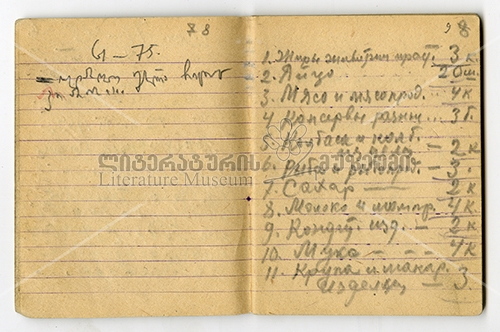 78
61 – 75.
98
1. Жиры животн. прод. 3 к.
2. Яйцо 20 ш.
3. Мясо и мясопрод. 4 к
4. Консервы разные ... 3 б.
5. Колбаса и колб.
изделия – 2 к
ლიტერატურის მუზეუმი
Literature Museum
6. Рыба и рыбопрод. – 3.
7. Сахар – 2 к
8. Молоко и молпр. 4 к.
9. Кондит. изд. – 2 к
10. Мука – – . 4 к
11. Крупа и макар.
изделия – 3